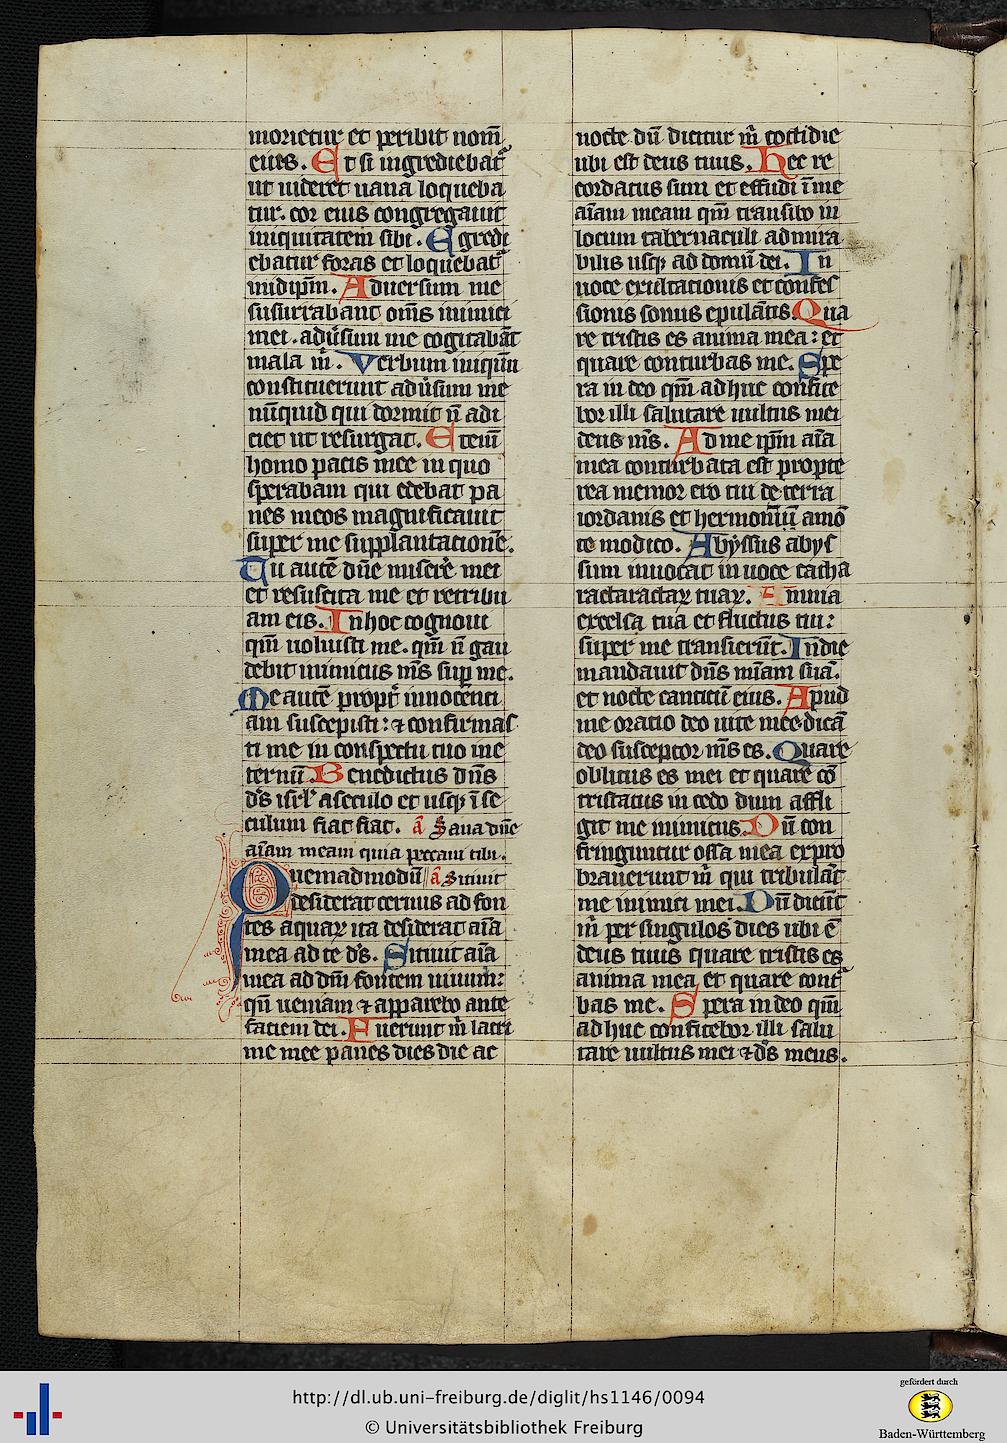 morietur et peribit nom̄
eius. Et si ingrediebat᷑
ut uideret uana loqueba
tur. cor eius congregauit
iniquitatem sibi. Egredi
ebatur foras et loquebat᷑
in idip̄m. Aduersum me
susurrabant om̄s inimici
mei. adu̓sum me cogitabāt
mala m̄. Verbum iniquū
constituerunt adu̓sum me
nūquid qui dormit n̄ adi
ciet ut resurgat. Etenī
homo pacis mee in quo
sperabam qui edebat pa
nes meos magnificauit
super me supplantationē.
Tu autē dn̄e miserē mei
et resuscita me et retribu
am eis. In hoc cognoui
qm̄ uoluisti me. qm̄ n̄ gau
debit inimicus m̄s sup me.
Me autē propt̓ innocenti
am suscepisti: ⁊ confirmas
ti me in conspectu tuo in e
ternū. Benedictus dn̄s
d̄s isrl̓ a seculo et usqꝫ ī se
culum fiat fiat. ā Sana dn̄e
aīam meam quia peccaui tibi.
Quemadmodū ā Sitiuit
desiderat ceruus ad fon
tes aquaꝝ ita desiderat aīa
mea ad te d̄s. Sitiuit aīa
mea ad dm̄ fontem uiuum:
qn̄ ueniam ⁊ apparebo ante
faciem dei. Fuerunt m̄ lacri
me mee panes die ac
nocte dū dicitur m̄ cottidie
ubi est deus tuus. Hec re
cordatus sum et effudi ī me
aīam meam qm̄ transibo in
locum tabernaculi admira
bilis usqꝫ ad domū dei. In
uoce exultationis et confes
sionis sonus epulātis. Qua
re tristis es anima mea: et
quare conturbas me. Spe
ra in deo qm̄ adhuc confite
bor illi salutare uultus mei
deus m̄s. Ad me ip̄m aīa
mea conturbata est propte
rea memor ero tui de terra
iordanis et hermoniū a mō
te modico. Abyssus abys
sum inuocat in uoce catha
ractaractaꝝ tuaꝝ. Omnia
excelsa tua et fluctus tui:
super me transierūt. In die
mandauit dn̄s m̄iam suā.
et nocte canticū eius. Apud
me oratio deo uite mee dicā
deo susceptor m̄s es. Quare
oblitus es mei et quare cō
tristatus incedo dum affli
git me inimicus. Dū con
fringuntur ossa mea expro
brauerunt m̄ qui tribulāt
me inimici mei. Dū dicūt
m̄ per singulos dies ubi ē
deus tuus quare tristis es
anima mea et quare cont᷑
bas me. Spera in deo qm̄
adhuc confitebor illi salu
tare uultus mei ⁊ d̄s meus.
http://dl.ub.uni-freiburg.de/diglit/hs1146/0094
© Universitätsbibliothek Freiburg
gefördert durch
Baden-Württemberg